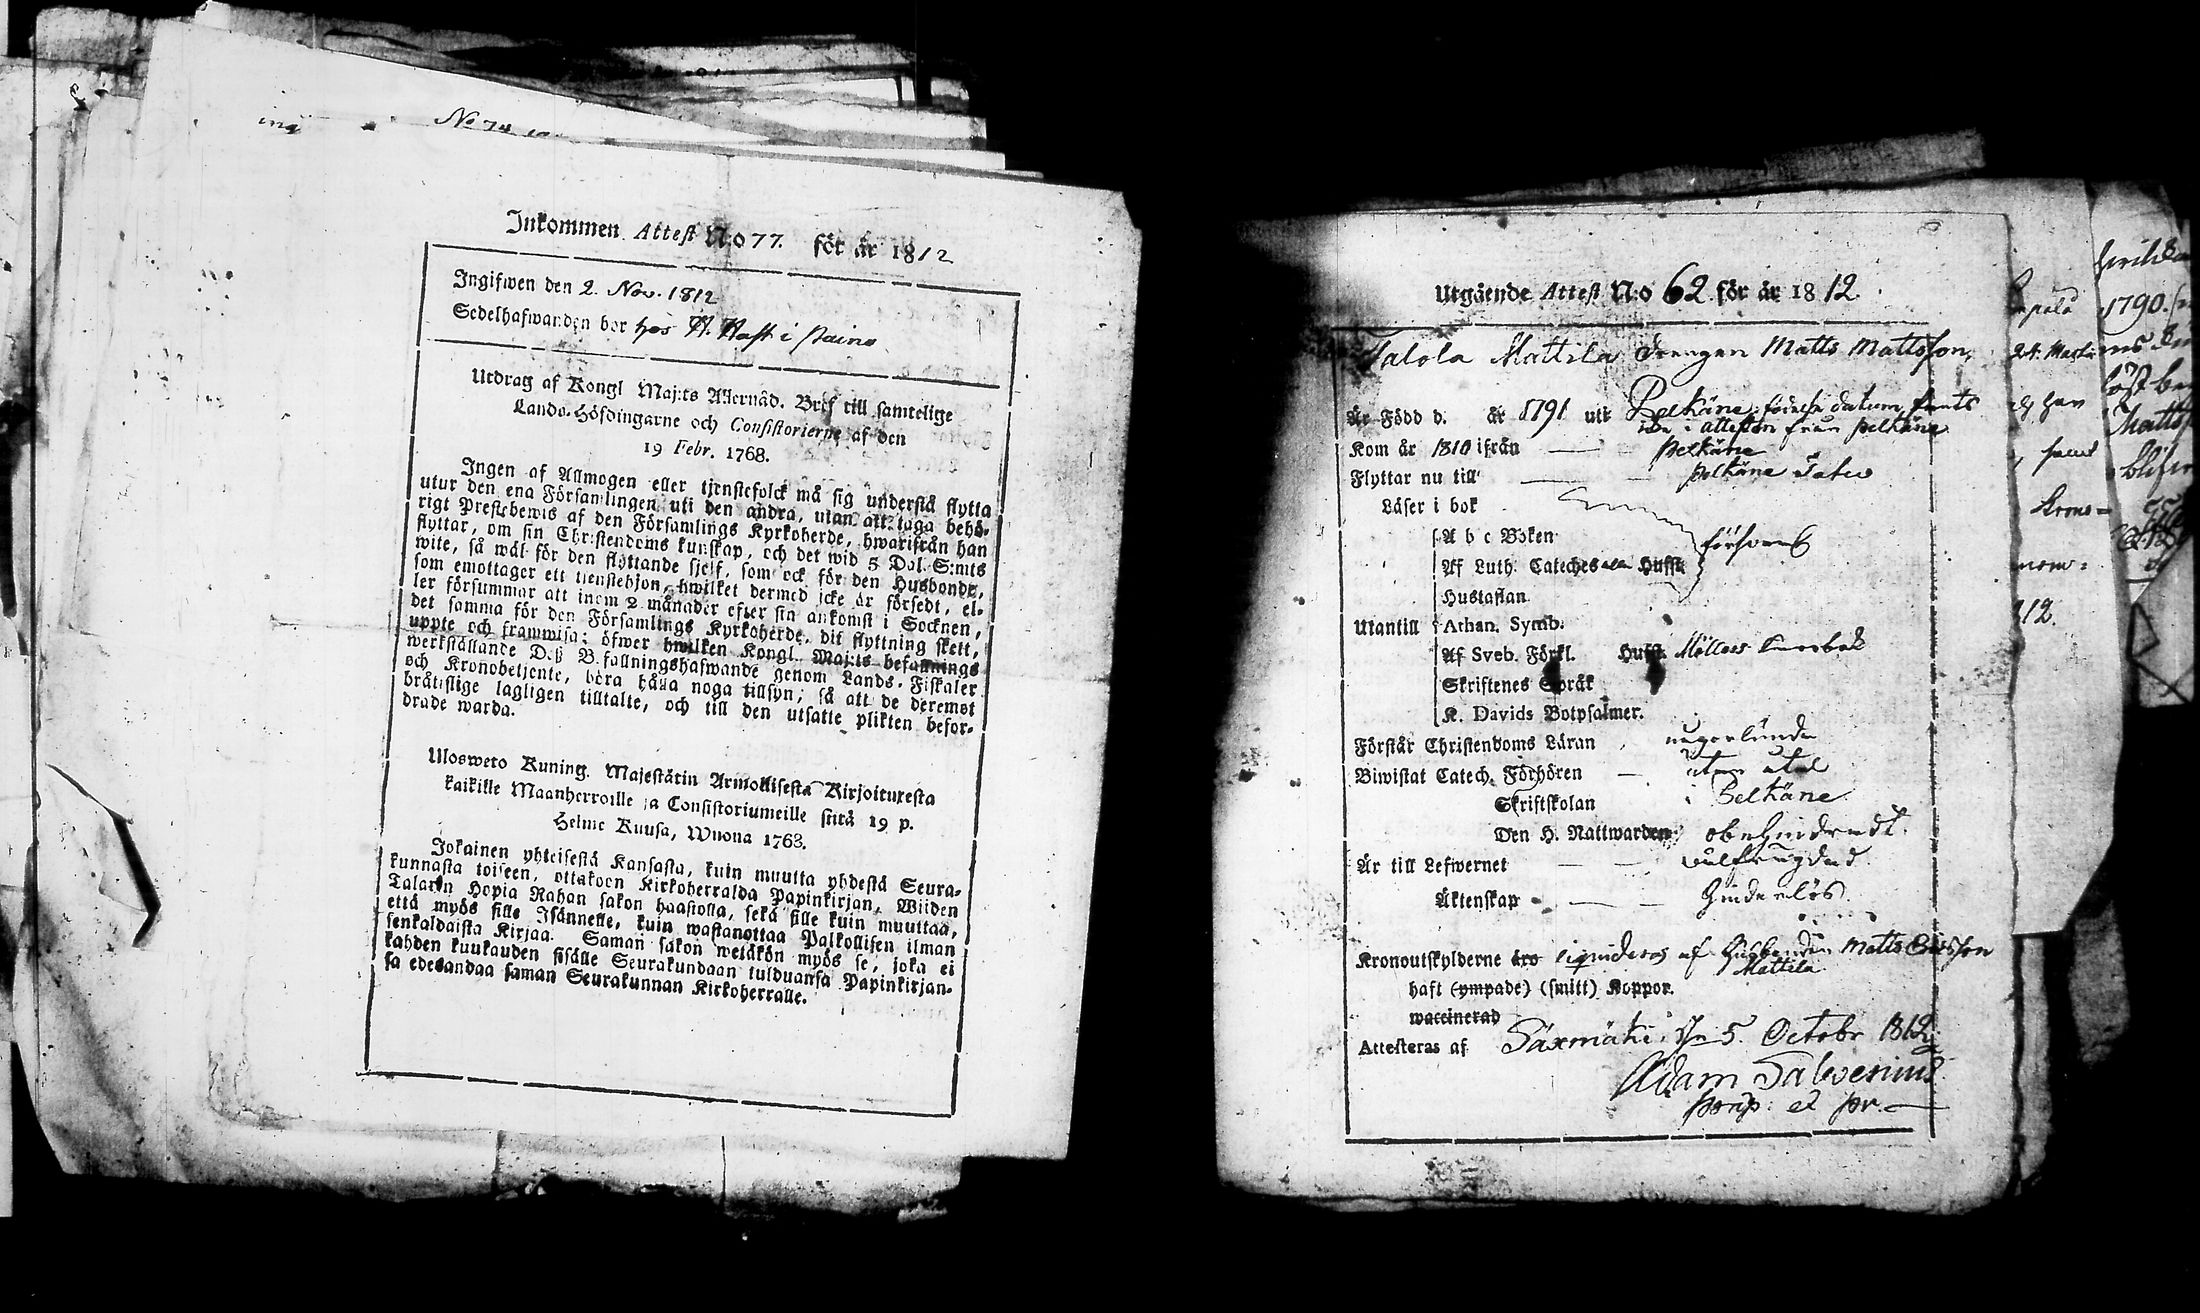 No 74
Inkommen Attest N:o 77. för år 1812
Ingifwen den 2. Nov. 1812
Sedelhafwanden bor hos
Utdrag af Kongl Maj:ts Allernåd. Bref till samtelige
Lands-Höfdingarne och Consistorierne af den
19 Febr. 1768.
Ingen af Allmogen eller tjenstefolck må sig understå flytta
utur den ena Församlingen uti den andra, utan att taga behö-
rigt Prestebewis af den Församlings Kyrkoherde, hwarifrån han
flyttar, om sin Christendoms kunskap, och det wid 5 Dal. S:mts
wite, så wäl för den flyttande sjelf, som ock för den Husbonde,
som emottager ett tjenstehjon, hwilket dermed icke är försedt, el-
ler försummar att inom 2 månader efter sin ankomst i Socknen,
det samma för den Församlings Kyrkoherde, dit flyttning skett,
uppte och framwisa; öfwer hwilken Kongl. Maj:ts befallnings
werkställande Deß Befallningshafwande genom Lands-Fiskaler
och Kronobetjente, böra hålla noga tillsyn, så att de deremot
bråtislige lagligen tilltalte, och till den utsatte plikten befor-
drade warda.
Ulosweto Kuning. Majestätin Armollisesta Kirjoituxesta
kaikille Maanherroille ja Consistoriumeille siitä 19 p.
Helme Kuusa, Wuona 1768.
Jokainen yhteisestä Kansasta, kuin muutta yhdestä Seura-
kunnasta toiseen, ottakoon Kirkoherralda Papinkirjan, Wiiden
Talarin Hopia Rahan sakon haastolla, sekä sille kuin muuttaa,
että myös sille Isännelle, kuin wastanottaa Palkollisen ilman
senkaldaista Kirjaa. Saman sakon wetäkön myös se, joka ei
kahden kuukauden sisälle Seurakundaan tulduansa Papinkirjan-
sa edesandaa saman Seurakunnan Kirkoherralle.
Utgående Attest N:o 62 för år 1812.
Talola Mattila Drengen Matts Mattsson,
Är Född d. år 1791 uti Pelkäne, födelse datum finnts
icke i attesten från Pelkäne
Kom år 1810 ifrån Pelkäne
Flyttar nu till Pelkäne
Läser i bok
A b c Boken
försvarl
Af Luth. Cateches Hufst.
Hustaflan
Utantill Athan. Symb.
Af Sveb. Förkl. Hufst. Möllers
Skriftenes Språk
K. Davids Botpsalmer.
Förstår Christendoms Läran någorlunda
Biwistat Catech. Förhören
Skriftskolan i Pelkäne
Den H. Nattwarden obehindradt.
Är till Lefwernet wälfrägdad.
Äktenskap hinderlös.
Kronoutskylderne äro liqvideras af Husbonden Matts Ericsson
Mattila
haft (ympade) (smitt) Koppor.
waccinerad
Attesteras af Säxmäki, d. 5. Octobr 1812,
Adam Salvenius
1790.
24. Marti
12.